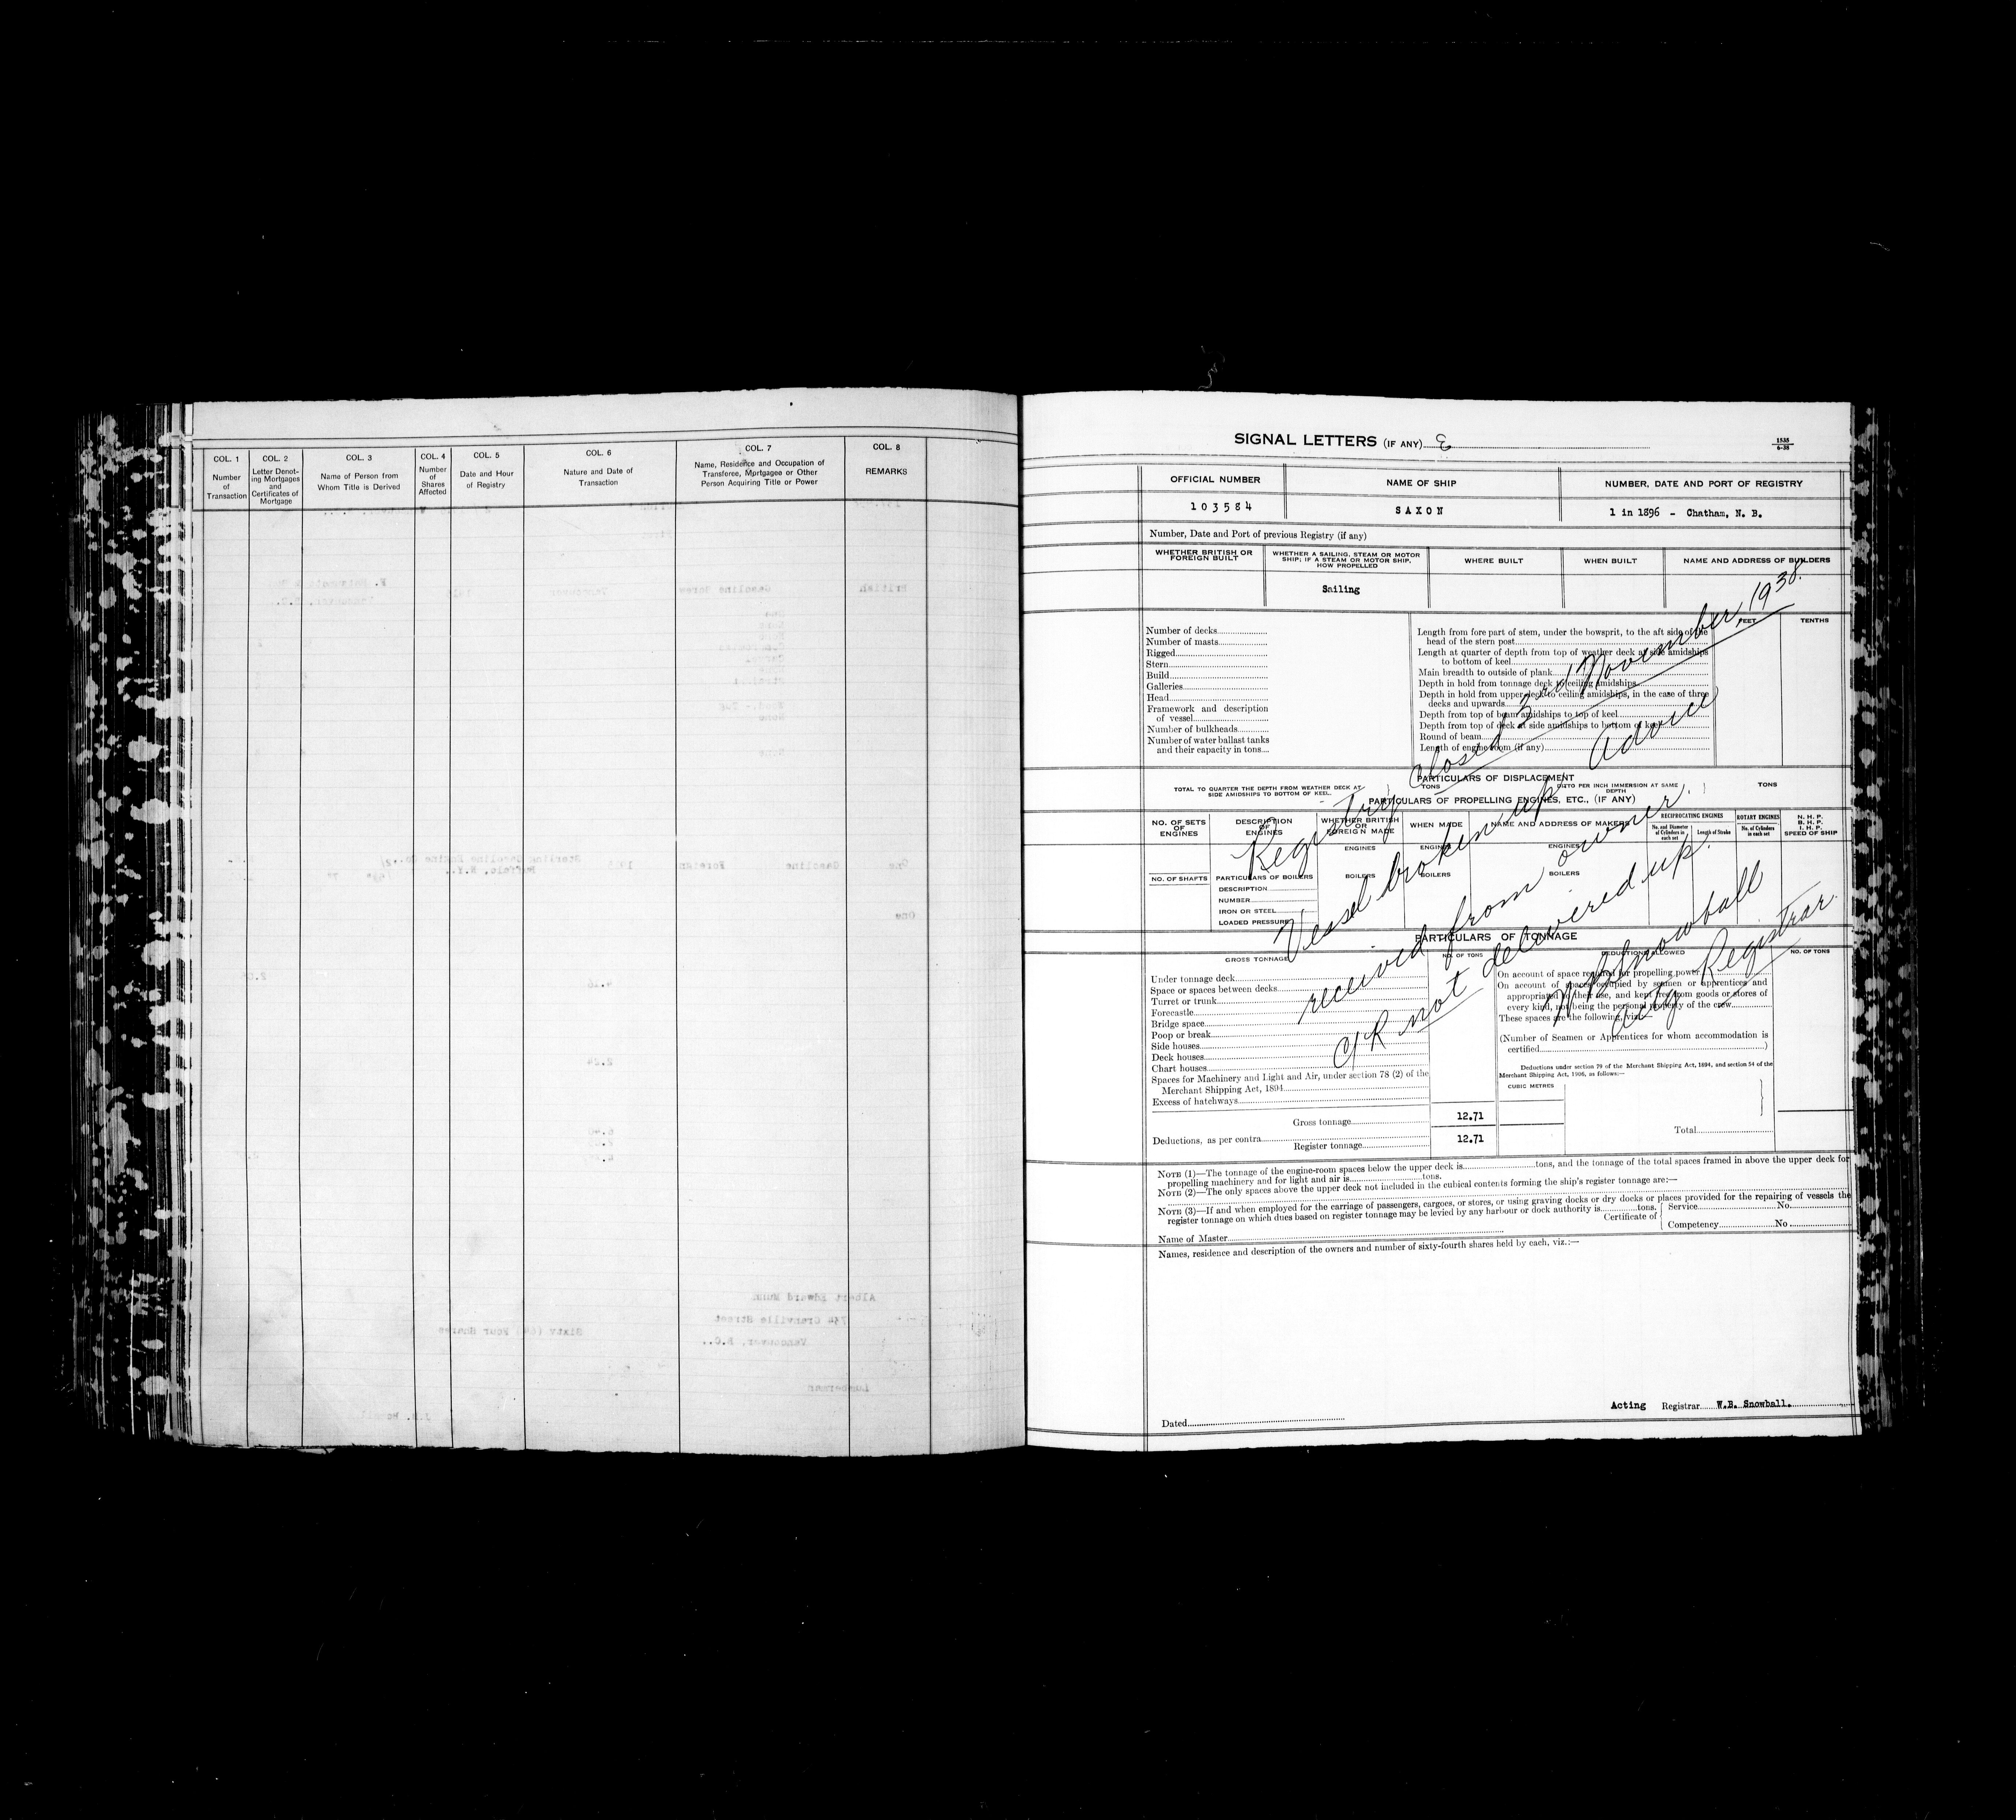 COL. 1
Number
of
Transaction
COL. 2
Letter Denot-
ing Mortgages
and
Certificates of
Mortgage
COL. 3
Name of Person from
Whom Title is Derived
COL. 4
Number
of
Shares
Affected
COL. 5
Date and Hour
of Registry
COL. 6
Nature and Date of
Transaction
COL. 7
Name, Residence and Occupation of
Transferee, Mortgagee or Other
Person Acquiring Title or Power
COL. 8
REMARKS
SIGNAL LETTERS (IF ANY)
1535
6-38
OFFICIAL NUMBER
NAME OF SHIP
NUMBER, DATE AND PORT OF REGISTRY
103584
SAXON
1 in 1896 - Chatham, N. B.
Number, Date and Port of previous Registry (if any)
WHETHER BRITISH OR
FOREIGN BUILT
WHETHER A SAILING, STEAM OR MOTOR
SHIP; IF A STEAM OR MOTOR SHIP,
HOW PROPELLED
WHERE BUILT
WHEN BUILT
NAME AND ADDRESS OF BUILDERS
Sailing
Number of decks
Number of masts
Rigged
Stern
Build
Galleries
Head
Framework and description
of vessel
Number of bulkheads
Number of water ballast tanks
and their capacity in tons
FEET
TENTHS
Length from fore part of stem, under the bowsprit, to the aft side of the
head of the stern post
Length at quarter of depth from top of weather deck at side amidships
to bottom of keel
Main breadth to outside of plank
Depth in hold from tonnage deck to ceiling amidships
Depth in hold from upper deck to ceiling amidships, in the case of three
decks and upwards
Depth from top of beam amidships to top of keel
Depth from top of deck at side amidships to bottom of keel
Round of beam
Length of engine room (if any)
PARTICULARS OF DISPLACEMENT
TOTAL TO QUARTER THE DEPTH FROM WEATHER DECK AT
SIDE AMIDSHIPS TO BOTTOM OF KEEL.
TONS
DITTO PER INCH IMMERSION AT SAME
DEPTH
TONS
PARTICULARS OF PROPELLING ENGINES, ETC., (IF ANY)
NO. OF SETS
OF
ENGINES
DESCRIPTION
OF
ENGINES
WHETHER BRITISH
OR
FOREIGN MADE
WHEN MADE
NAME AND ADDRESS OF MAKERS
RECIPROCATING ENGINES
No. and Diameter
of Cylinders in
each set
Length of Stroke
ROTARY ENGINES
No. of Cylinders
in each set
N. H. P.
B. H. P.
I. H. P.
SPEED OF SHIP
ENGINES
ENGINES
ENGINES
NO. OF SHAFTS
PARTICULARS OF BOILERS
BOILERS
BOILERS
BOILERS
DESCRIPTION
NUMBER
IRON OR STEEL
LOADED PRESSURE
Registry Closed 3rd November, 1938.
Vessel broken up Advice
received from owner.
C/R not delivered up.
WBSnowball
Actg Registrar.
PARTICULARS OF TONNAGE
GROSS TONNAGE
NO. OF TONS
DEDUCTIONS ALLOWED
NO. OF TONS
Under tonnage deck
Space or spaces between decks
Turret or trunk
Forecastle
Bridge space
Poop or break
Side houses
Deck houses
Chart houses
Spaces for Machinery and Light and Air, under section 78 (2) of the
Merchant Shipping Act, 1894
Excess of hatchways
Gross tonnage
12.71
Deductions, as per contra
Register tonnage
12.71
On account of space required for propelling power
On account of spaces occupied by seamen or apprentices and
appropriated to their use, and kept free from goods or stores of
every kind, not being the personal property of the crew
These spaces are the following, viz:—
(Number of Seamen or Apprentices for whom accommodation is
certified)
Deductions under section 79 of the Merchant Shipping Act, 1894, and section 54 of the
Merchant Shipping Act, 1906, as follows:—
CUBIC METRES
Total
NOTE (1)—The tonnage of the engine-room spaces below the upper deck is tons, and the tonnage of the total spaces framed in above the upper deck for
propelling machinery and for light and air is tons.
NOTE (2)—The only spaces above the upper deck not included in the cubical contents forming the ship's register tonnage are:—
NOTE (3)—If and when employed for the carriage of passengers, cargoes, or stores, or using graving docks or dry docks or places provided for the repairing of vessels the
register tonnage on which dues based on register tonnage may be levied by any harbour or dock authority is tons.
Certificate of
Service No.
Competency No
Name of Master
Names, residence and description of the owners and number of sixty-fourth shares held by each, viz.:—
Dated
Acting Registrar W.B. Snowball.